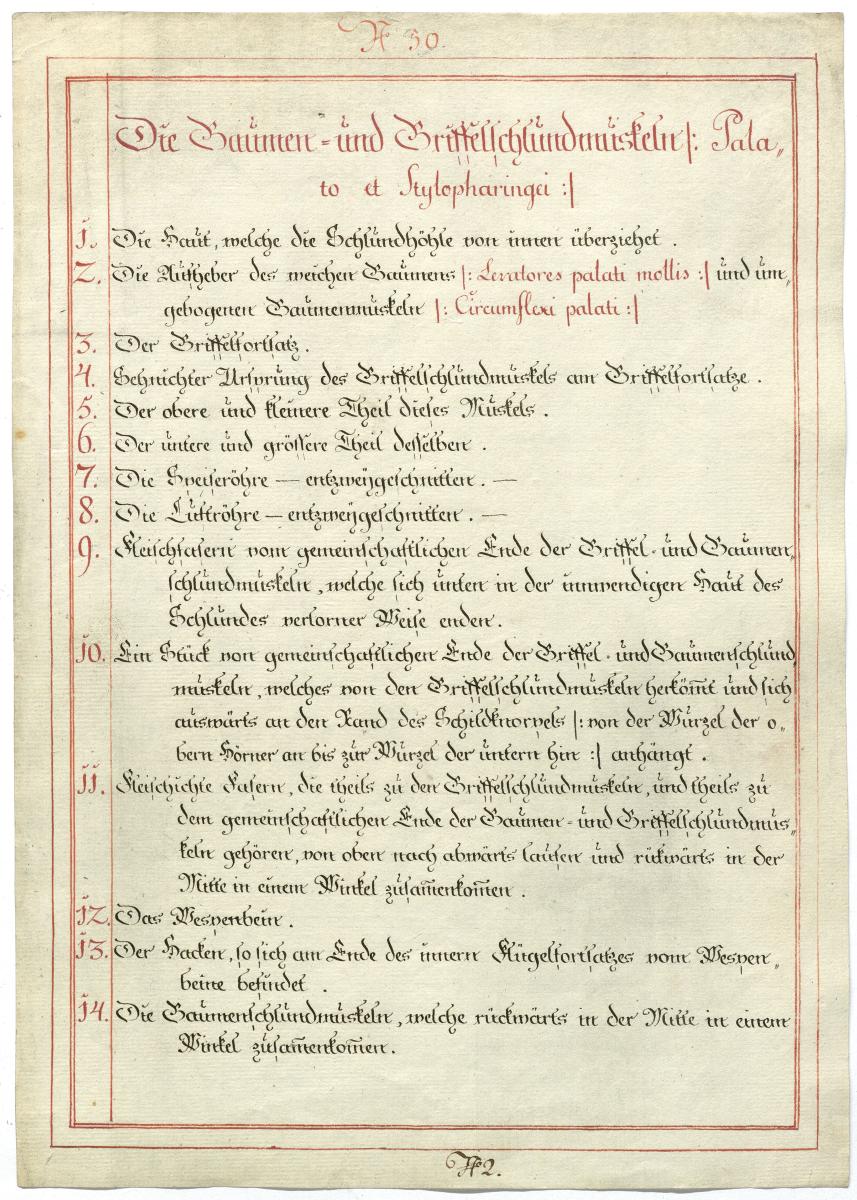 № 30.
Die Gaumen-und Griffelschlundmuskeln |: Pala„
to et Stylopharingei :|
1. Die Haut, welche die Schlundhöhle von innen überziehet.
2. Die Aufheber des weichen Gaumens |: Levatores palati mollis :| und um„
gebogenen Gaumenmuskeln |: Circumflexi palati :|
3. Der Griffelfortsatz.
4. Sehnichter Ursprung des Griffelschlundmuskels am Griffelfortsatze.
5. Der obere und kleinere Theil dieses Muskels.
6. Der untere und grössere Theil desselben.
7. Die Speiseröhre — entzweygeschnitten. —
8. Die Luftröhre — entzweygeschnitten. —
9. Fleischfasern vom gemeinschaftlichen Ende der Griffel-und Gaumen„
schlundmuskeln, welche sich unten in der innwendigen Haut des
Schlundes verlorner Weise enden.
10. Ein Stück von gemeinschaftlichen Ende der Griffel-und Gaumenschlund
muskeln, welches von den Griffelschlundmuskeln herkom̅t und sich
auswärts an den Rand des Schildknorpels |: von der Wurzel der o„
bern Hörner an bis zur Wurzel der untern hin :| anhängt.
11. Fleischichte Fasern, die theils zu den Griffelschlundmuskeln, und theils zu
dem gemeinschaftlichen Ende der Gaumen-und Griffelschlundmus„
keln gehören, von oben nach abwärts laufen und rückwärts in der
Mitte in einem Winkel zusam̅enkom̅en.
12. Das Wespenbein.
13. Der Hacken, so sich am Ende des innern Flügelfortsatzes vom Wespen„
beine befindet.
14. Die Gaumenschlundmuskeln, welche rückwärts in der Mitte in einem
Winkel zusam̅enkom̅en.